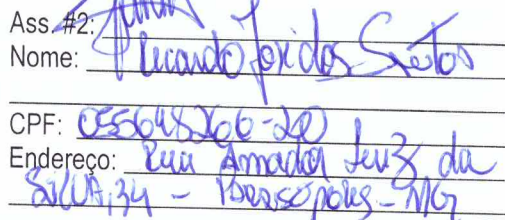 Ass. #2:
Nome: Ricardo José dos Santos
CPF: 055648266-20
Endereço: Rua Amador Luiz da
SILVA, 34 - Paraisópolis - MG